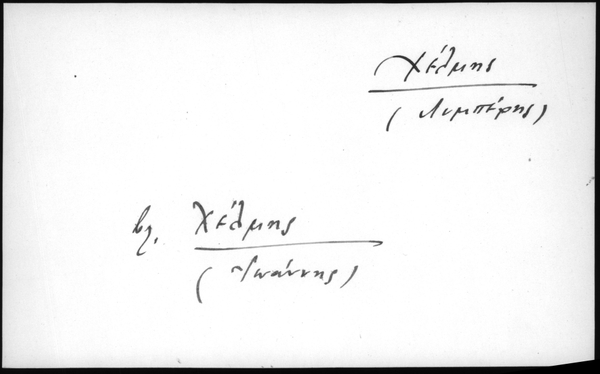 Χέλμης
(Λυμπέρης)
βλ. Χέλμης
(Ἰωάννης)